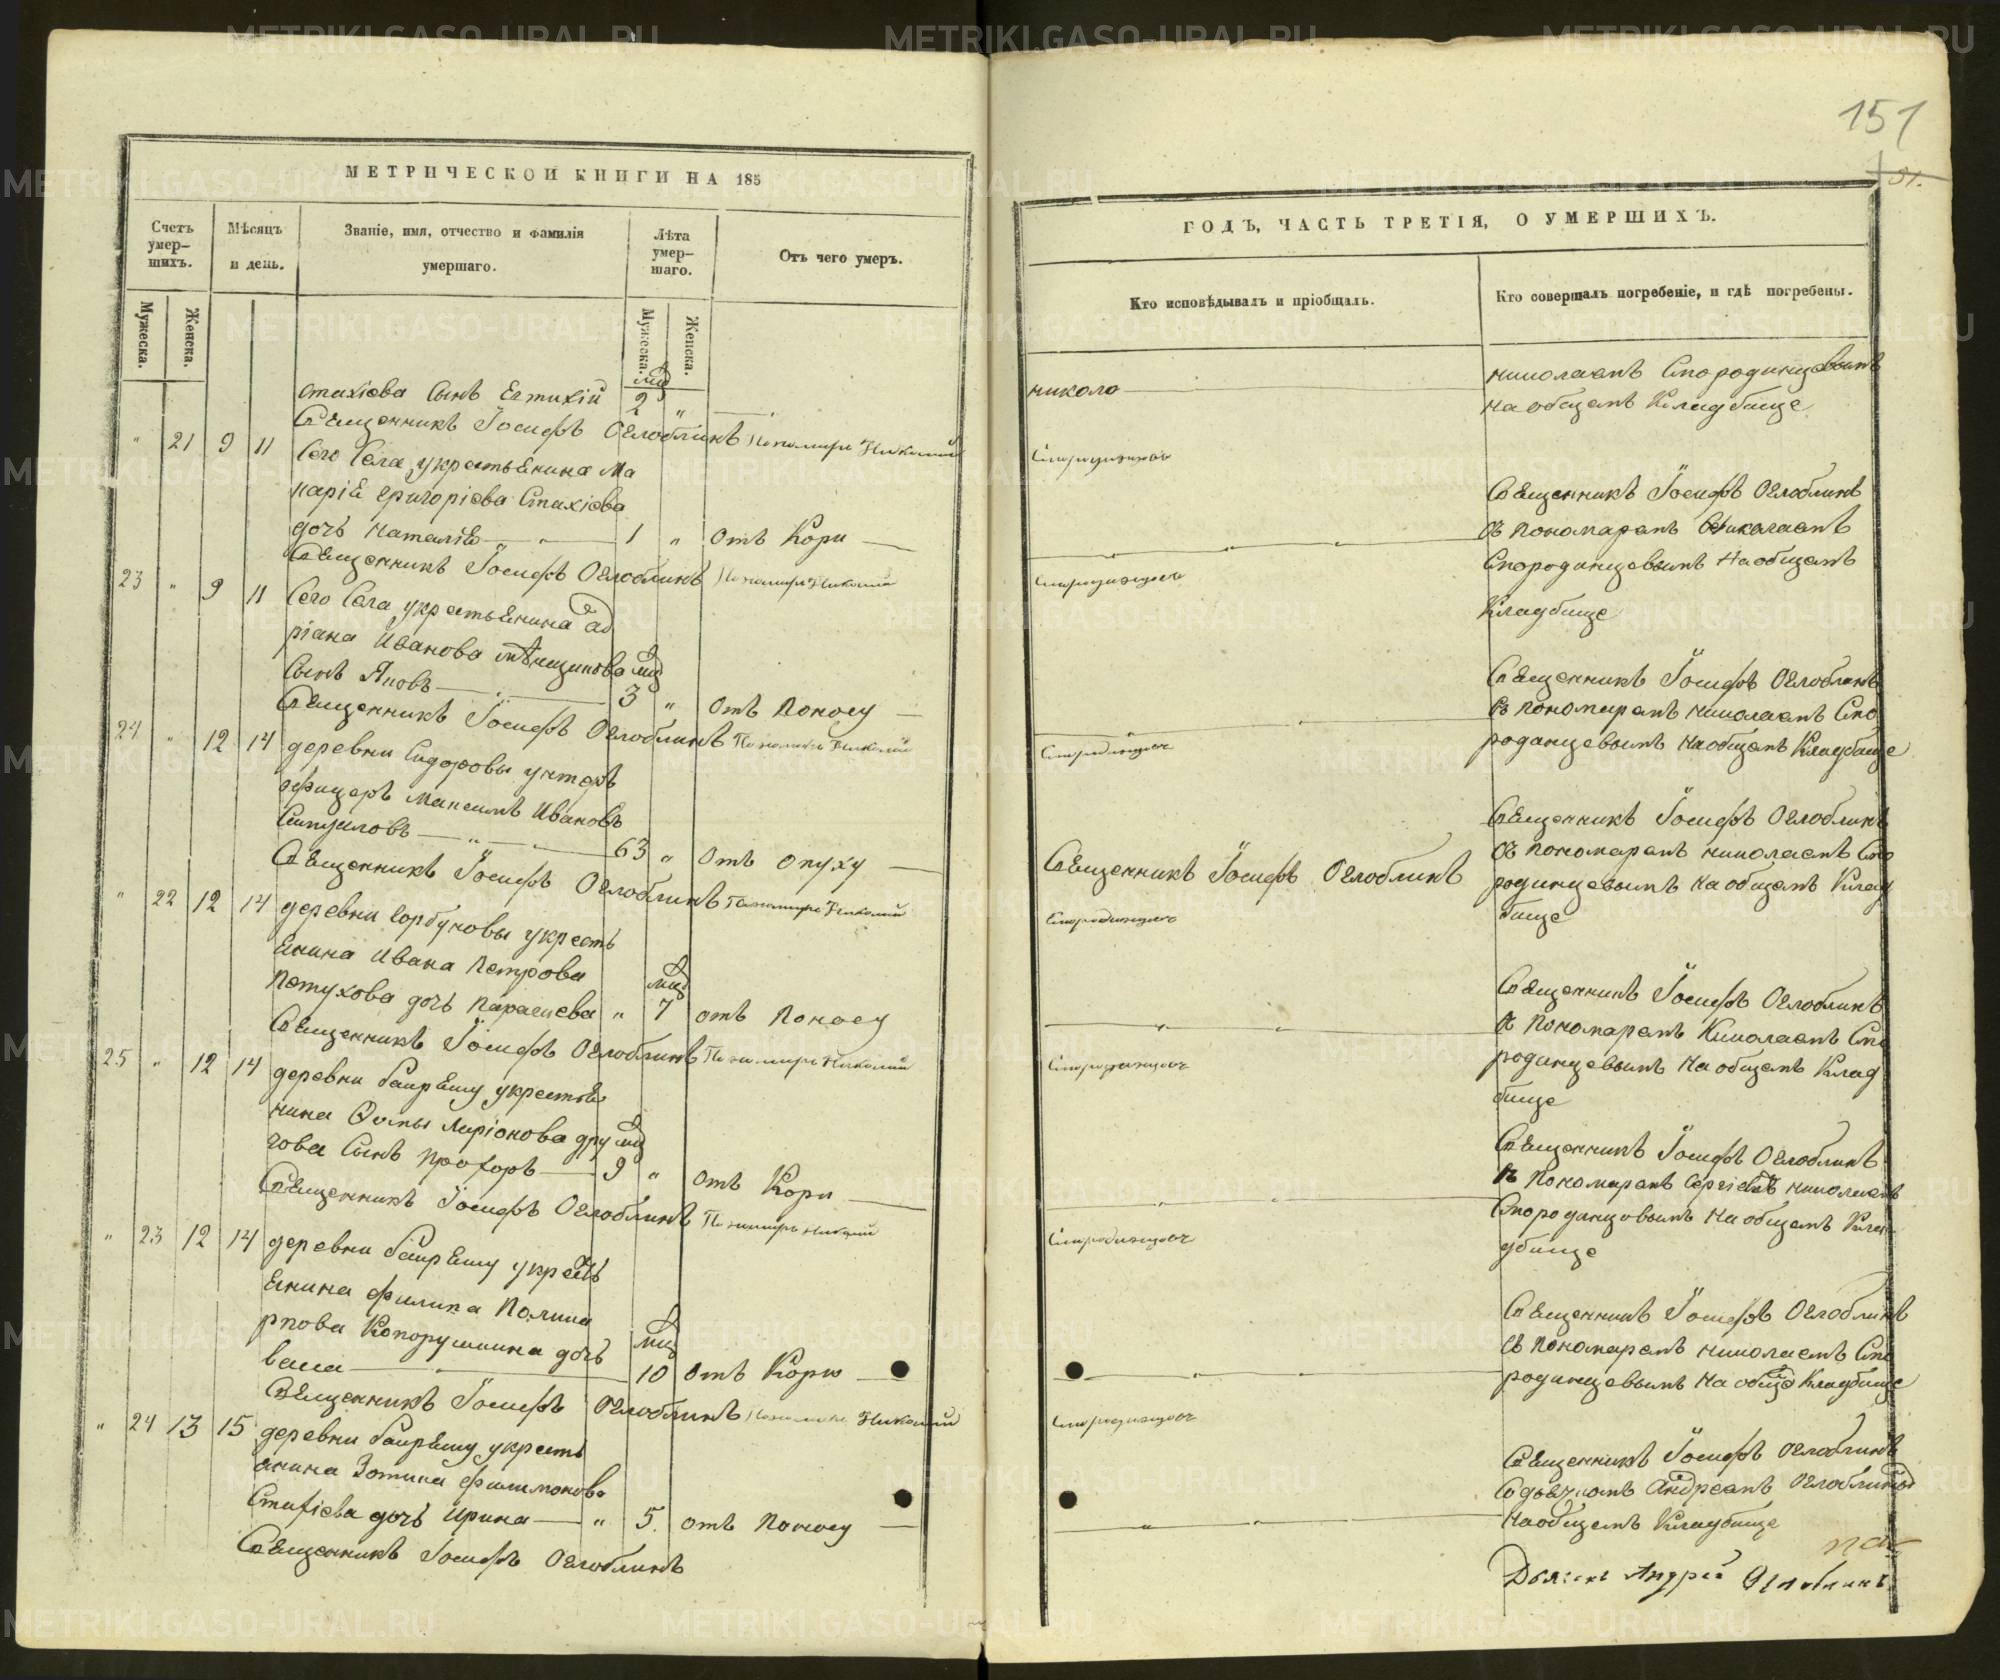 151
МЕТРИЧЕСКОЙ КНИГИ НА 185
Счетъ умер-
шихъ.
Мѣсяцъ
и день.
Званіе, имя, отчество и фамилія
умершаго.
Лѣта
умер-
шаго.
Отъ чего умеръ.
Мужеска.
Женска.
Мужеска.
Женска.
стахіева сынъ Евтихій 2 "
Священникъ Іосифъ Оглоблинъ Пономарь Николай
" 21 9 11 Сего Села, у крестьянина Ма
карія григоріева Стахіева
дочь наталія 1 " отъ Кори
Священникъ Іосифъ Оглоблинъ Пономарь Николай
23 " 9 11 Сего Села, у крестьянина ад
ріана Иванова
сынъ Яковъ 3 " отъ Поносу
Священникъ Іосифъ Оглоблинъ Пономарь Николай
24 " 12 14 деревни Сидоровы унтеръ
офицеръ Максимъ Ивановъ
63 " отъ опуху
Священникъ Іосифъ Оглоблинъ Пономарь Николай
" 22 12 14 деревни Горбуновы у кресть
янина Ивана Петрова
Петухова дочь параскева " 7 отъ Поносу
Священникъ Іосифъ Оглоблинъ Пономарь Николай
25 " 12 14 деревни у крестья
нина Ѳомы Ларіонова дру
гова сынъ прохоръ 9 " отъ Кори
Священникъ Іосифъ Оглоблинъ Пономарь Николай
" 23 12 14 деревни у кресть
янина филипа Полика
рпова дочь
васса 10 отъ Кори
Священникъ Іосифъ Оглоблинъ Пономарь Николай
" 24 13 15 деревни у кресть
янина Зотика филимонова
Стахіева дочь ирина " 5. отъ Поносу
Священникъ Іосифъ Оглоблинъ
ГОДЪ, ЧАСТЬ ТРЕТІЯ, О УМЕРШИХЪ.
Кто исповѣдывалъ и пріобщалъ.
Кто совершалъ погребеніе, и гдѣ погребены.
николаемъ Смородинцовымъ
на общемъ Кладбище
Смородинцовъ
Священникъ Іосифъ Оглоблинъ
съ пономаремъ николаемъ
Смородинцевымъ на общемъ
Кладбище
Смородинцовъ
Священникъ Іосифъ Оглоблинъ
съ пономаремъ николаемъ Смо
родинцевымъ на общемъ Кладбище
Смородинцовъ
Священникъ Іосифъ Оглоблинъ
Священникъ Іосифъ Оглоблинъ
съ пономаремъ николаемъ Смо
родинцевымъ на общемъ Клад
бище
Смородинцовъ
Священникъ Іосифъ Оглоблинъ
съ Пономаремъ Николаемъ Смо
родинцевымъ на общемъ Клад
бище
Смородинцовъ
Священникъ Іосифъ Оглоблинъ
съ Пономаремъ николаемъ
Смородинцовымъ на общемъ Кла
дбище
Смородинцовъ
Священникъ Іосифъ Оглоблинъ
съ Пономаремъ николаемъ Смо
родинцевымъ на общемъ Кладбище
Смородинцовъ
Священникъ Іосифъ Оглоблинъ
Содьячкомъ Андреемъ Оглоблинымъ
на общемъ Кладбище
Дьячекъ Андрей Оглоблинъ
METRIKI.GASO-URAL.RU